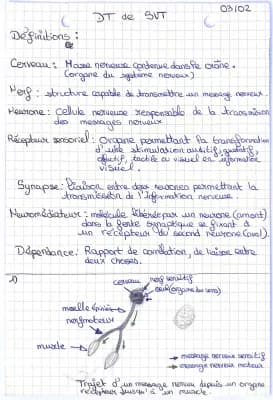 03/02
DT de SVT
Définitions :
Cerveau : Masse nerveuse contenue dans le crâne.
(organe du système nerveux)
Nerf : structure capable de transmettre un message nerveux.
Neurone : Cellule nerveuse responsable de la transmission
des messages nerveux.
Récepteur sensoriel : Organe permettant la transformation
d'une stimulation auditif, gustatif,
olfactif, tactile ou visuel en information
visuel.
Synapse : liaison entre deux neurones permettant la
transmission de l'information nerveuse.
Neuromédiateur : molécule libérée par un neurone (amont)
dans la fente synaptique se fixant à
un récepteur du second neurone (aval).
Dépendance : Rapport de corrélation, de liaison entre
deux choses.
1)
cerveau
nerf sensitif
oeil (organe des sens)
moelle épinière
nerf moteur
muscle
message nerveux sensitif
message nerveux moteur
Trajet d'un message nerveux depuis un organe
récepteur jusqu'à un muscle.